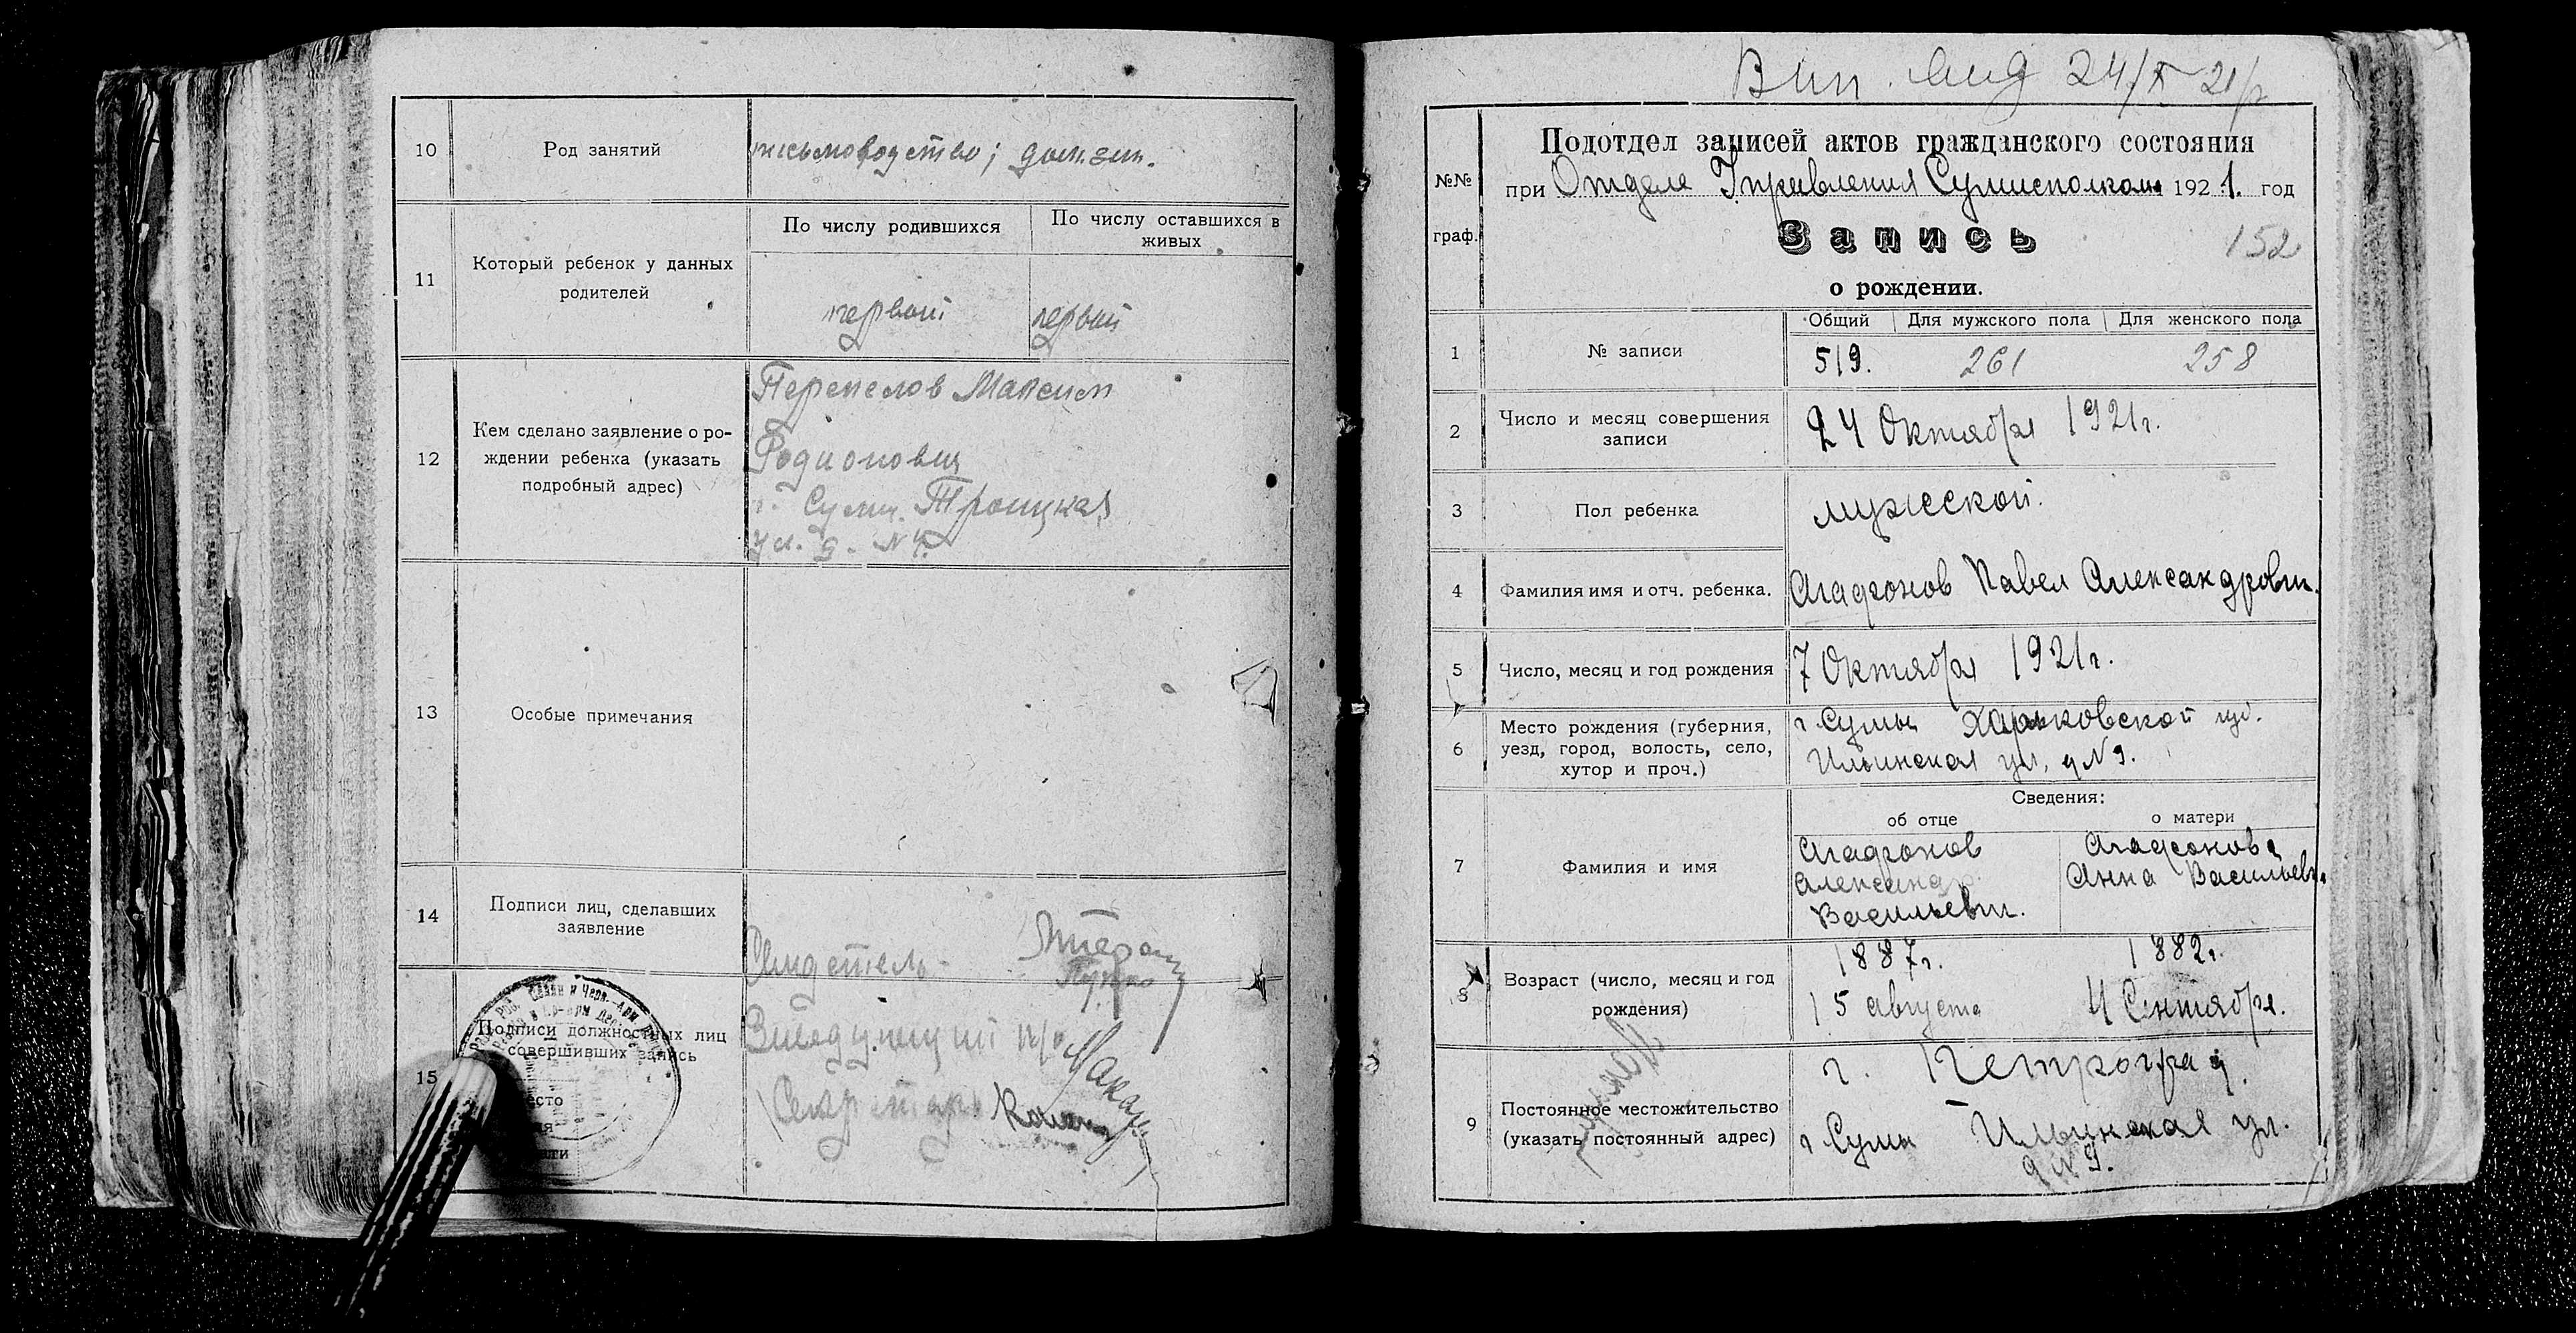 10
Род занятий
письмоводство; дом. зан.
11
Который ребенок у данных
родителей
По числу родившихся
По числу оставшихся в
живых
первый
первый
12
Кем сделано заявление о ро-
ждении ребенка (указать
подробный адрес)
Перепелов Максим
Родионович
г. Сумы. Троицкая
ул. д. № 4.
13
Особые примечания
14
Подписи лиц, сделавших
заявление
Свидетель
15
Подписи должностных лиц
совершивших запись
Заведующий п/о
Секретарь
Вып. 24/X 21 г
№№
граф.
Подотдел записей актов гражданского состояния
при Отделе Управления Сумисполкома 1921. год
Запись
152
о рождении.
1
№ записи
Общий
Для мужского пола
Для женского пола
519.
261
258
2
Число и месяц совершения
записи
24 Октября 1921г.
3
Пол ребенка
мужеской.
4
Фамилия имя и отч. ребенка.
Агафонов Павел Александрович.
5
Число, месяц и год рождения
7 Октября 1921г.
6
Место рождения (губерния,
уезд, город, волость, село,
хутор и проч.)
г Сумы Харьковской губ.
Ильинская ул, д № 9.
Сведения:
об отце
о матери
7
Фамилия и имя
Агафонов
Александр
Васильевич.
Агафонова
Анна Васильевна
8
Возраст (число, месяц и год
рождения)
1887г.
15 августа
1882г.
4 Сентября.
9
Постоянное местожительство
(указать постоянный адрес)
г. Петроград.
г Сумы Ильинская ул.
д № 9.